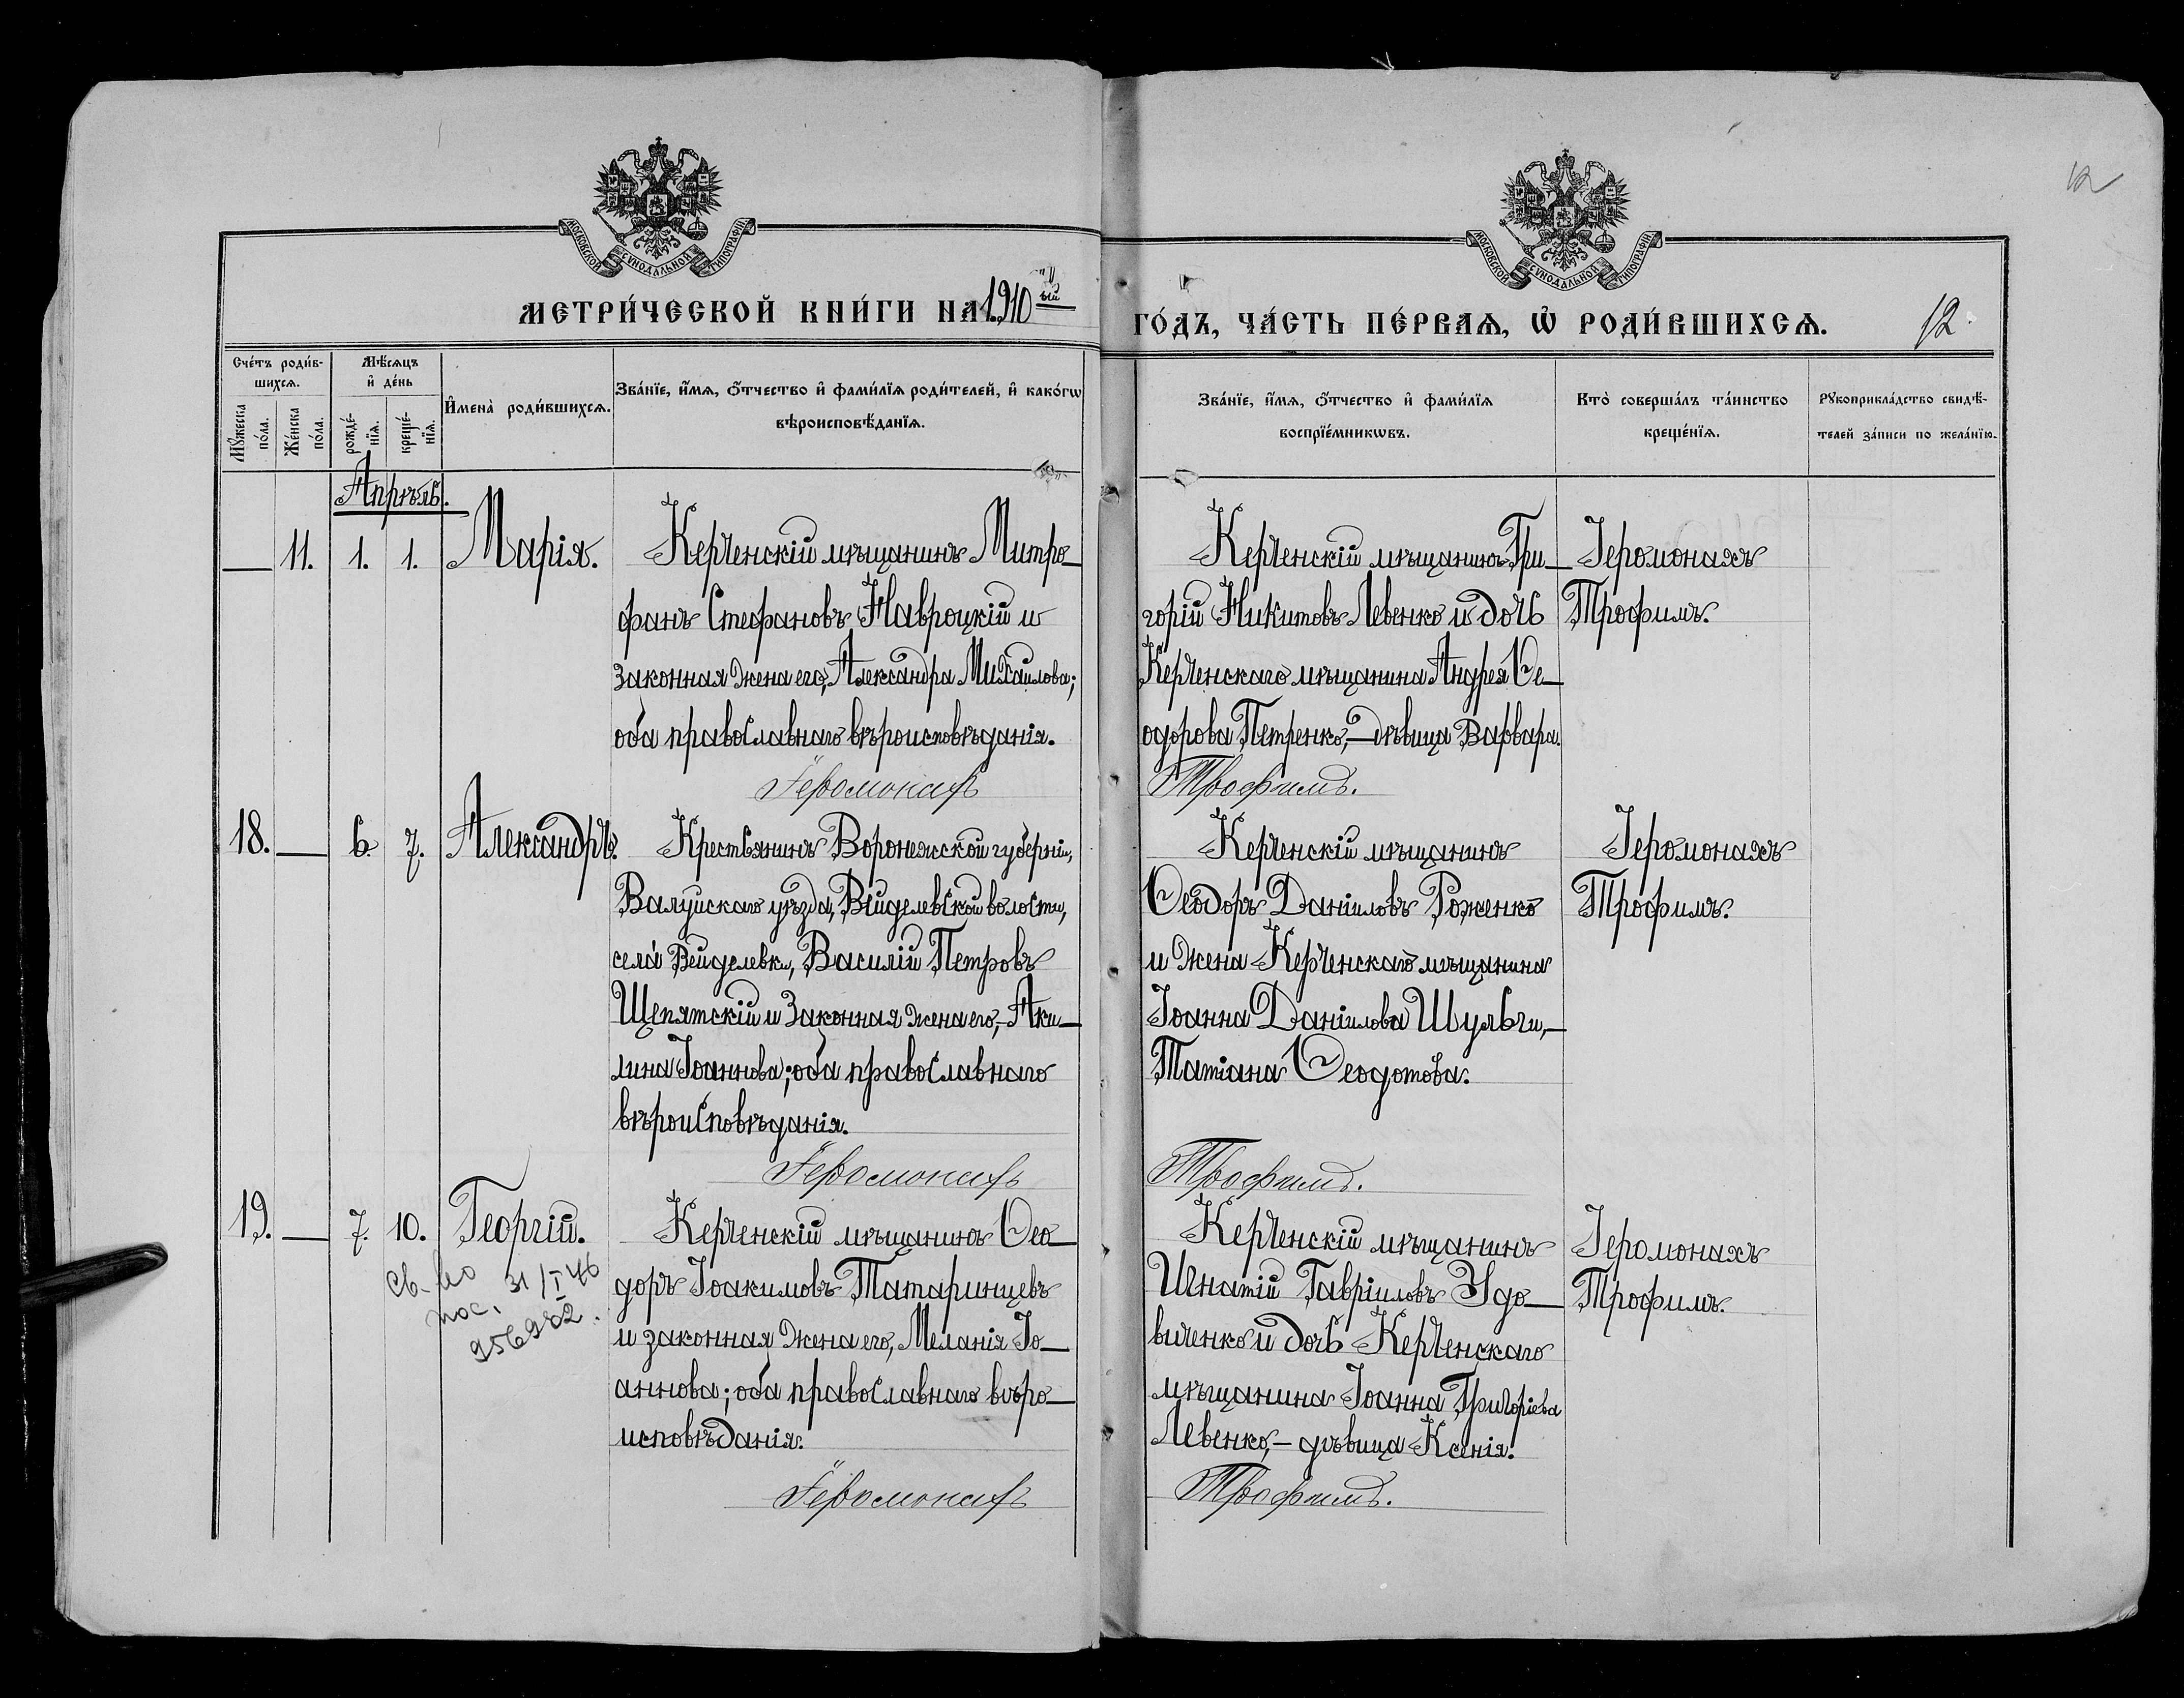 12
МОСКОВСКОЙ СѴНОДАЛЬНОЙ ТИПОГРАФІИ
МОСКОВСКОЙ СѴНОДАЛЬНОЙ ТИПОГРАФІИ
МЕТРИ́ЧЕСКОЙ КНИ́ГИ НА 1910ый
ГО́ДЪ, ЧА́СТЬ ПЕ́РВАѦ, Ѡ҆ РОДИ́ВШИХСѦ. 12.
Сче́тъ роди́в-
шихсѧ.
Мꙋ́жеска
по́ла.
Же́нска
по́ла.
Мѣ́сѧцъ
и҆ де́нь
рожде́-
нїѧ.
креще́-
нїѧ.
И҆мена̀ роди́вшихсѧ.
Зва́нїе, и҆́мѧ, ѻ҆́тчество и҆ фами́лїѧ роди́телей, и҆ како́гѡ
вѣроисповѣ́данїѧ.
Зва́нїе, и҆́мѧ, ѻ҆́тчество и҆ фами́лїѧ
воспрїе́мникѡвъ.
Кто̀ соверша́лъ та́инство
креще́нїѧ.
Рꙋкоприкла́дство свидѣ́-
телей за́писи по жела́нїю.
Апрѣль.
— 11. 1. 1. Марія.
Керченскій мѣщанинъ Митро-
фанъ Стефановъ Навроцкій и
законная жена его, Александра Михаилова;
оба православнаго вѣроисповѣданія.
Іеромонахъ
Керченскій мѣщанинъ Гри-
горій Никитовъ Левенко и дочь
Керченскаго мѣщанина Андрея Ѳе-
одорова Петренко,- дѣвица Варвара.
Трофимъ.
Іеромонахъ
Трофимъ.
18. — 6. 7. Александръ.
Крестьянинъ Воронежской губерніи,
Валуйскаго уѣзда, Вейделевской волости,
села Вейделевки, Василій Петровъ
Щепятскій и законная жена его,- Аки-
лина Іоаннова; оба православнаго
вѣроисповѣданія.
Іеромонахъ
Керченскій мѣщанинъ
Ѳеодоръ Даніиловъ Роженко
и жена Керченскаго мѣщанина
Іоанна Даніилова Шульги,-
Татіана Ѳеодотова.
Трофимъ.
Іеромонахъ
Трофимъ.
19. — 7. 10. Георгій.
св-во
пос. 31/I 46
956982.
Керченскій мѣщанинъ Ѳео-
доръ Іоакимовъ Татаринцевъ
и законная жена его, Меланія Іо-
аннова; оба православнаго вѣро-
исповѣданія.
Іеромонахъ
Керченскій мѣщанинъ
Игнатій Гавріиловъ Удо-
виченко и дочь Керченскаго
мѣщанина Іоанна Григоріева
Левенко,- дѣвица Ксенія.
Трофимъ.
Іеромонахъ
Трофимъ.